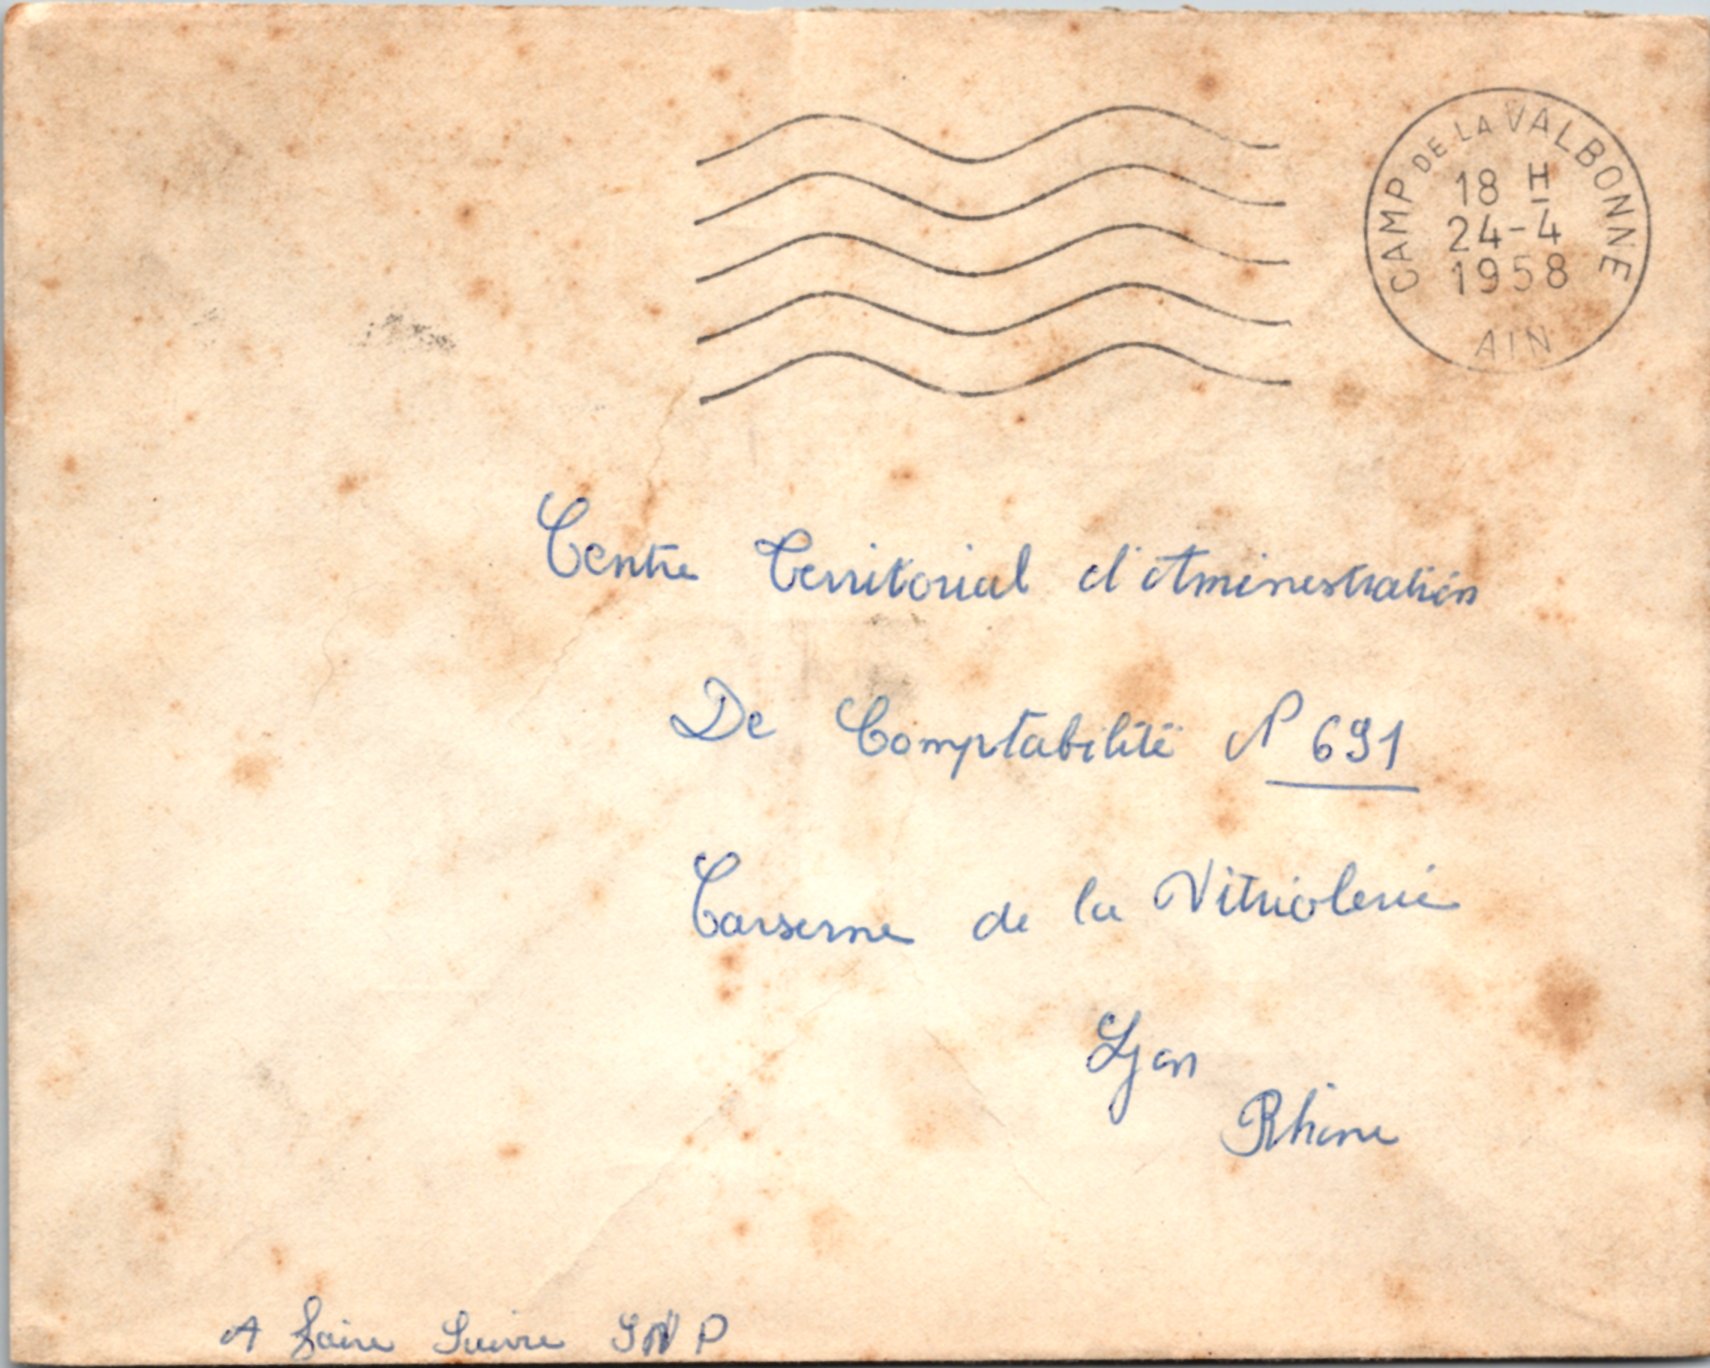 CAMP DE LA VALBONNE
18 H
24-4
1958
AIN
Centre Territorial d'Aminestration
De Comptabilité N 691
Carserne de la Vitriolerie
Lyon
Rhône
A Faire Suivre SVP